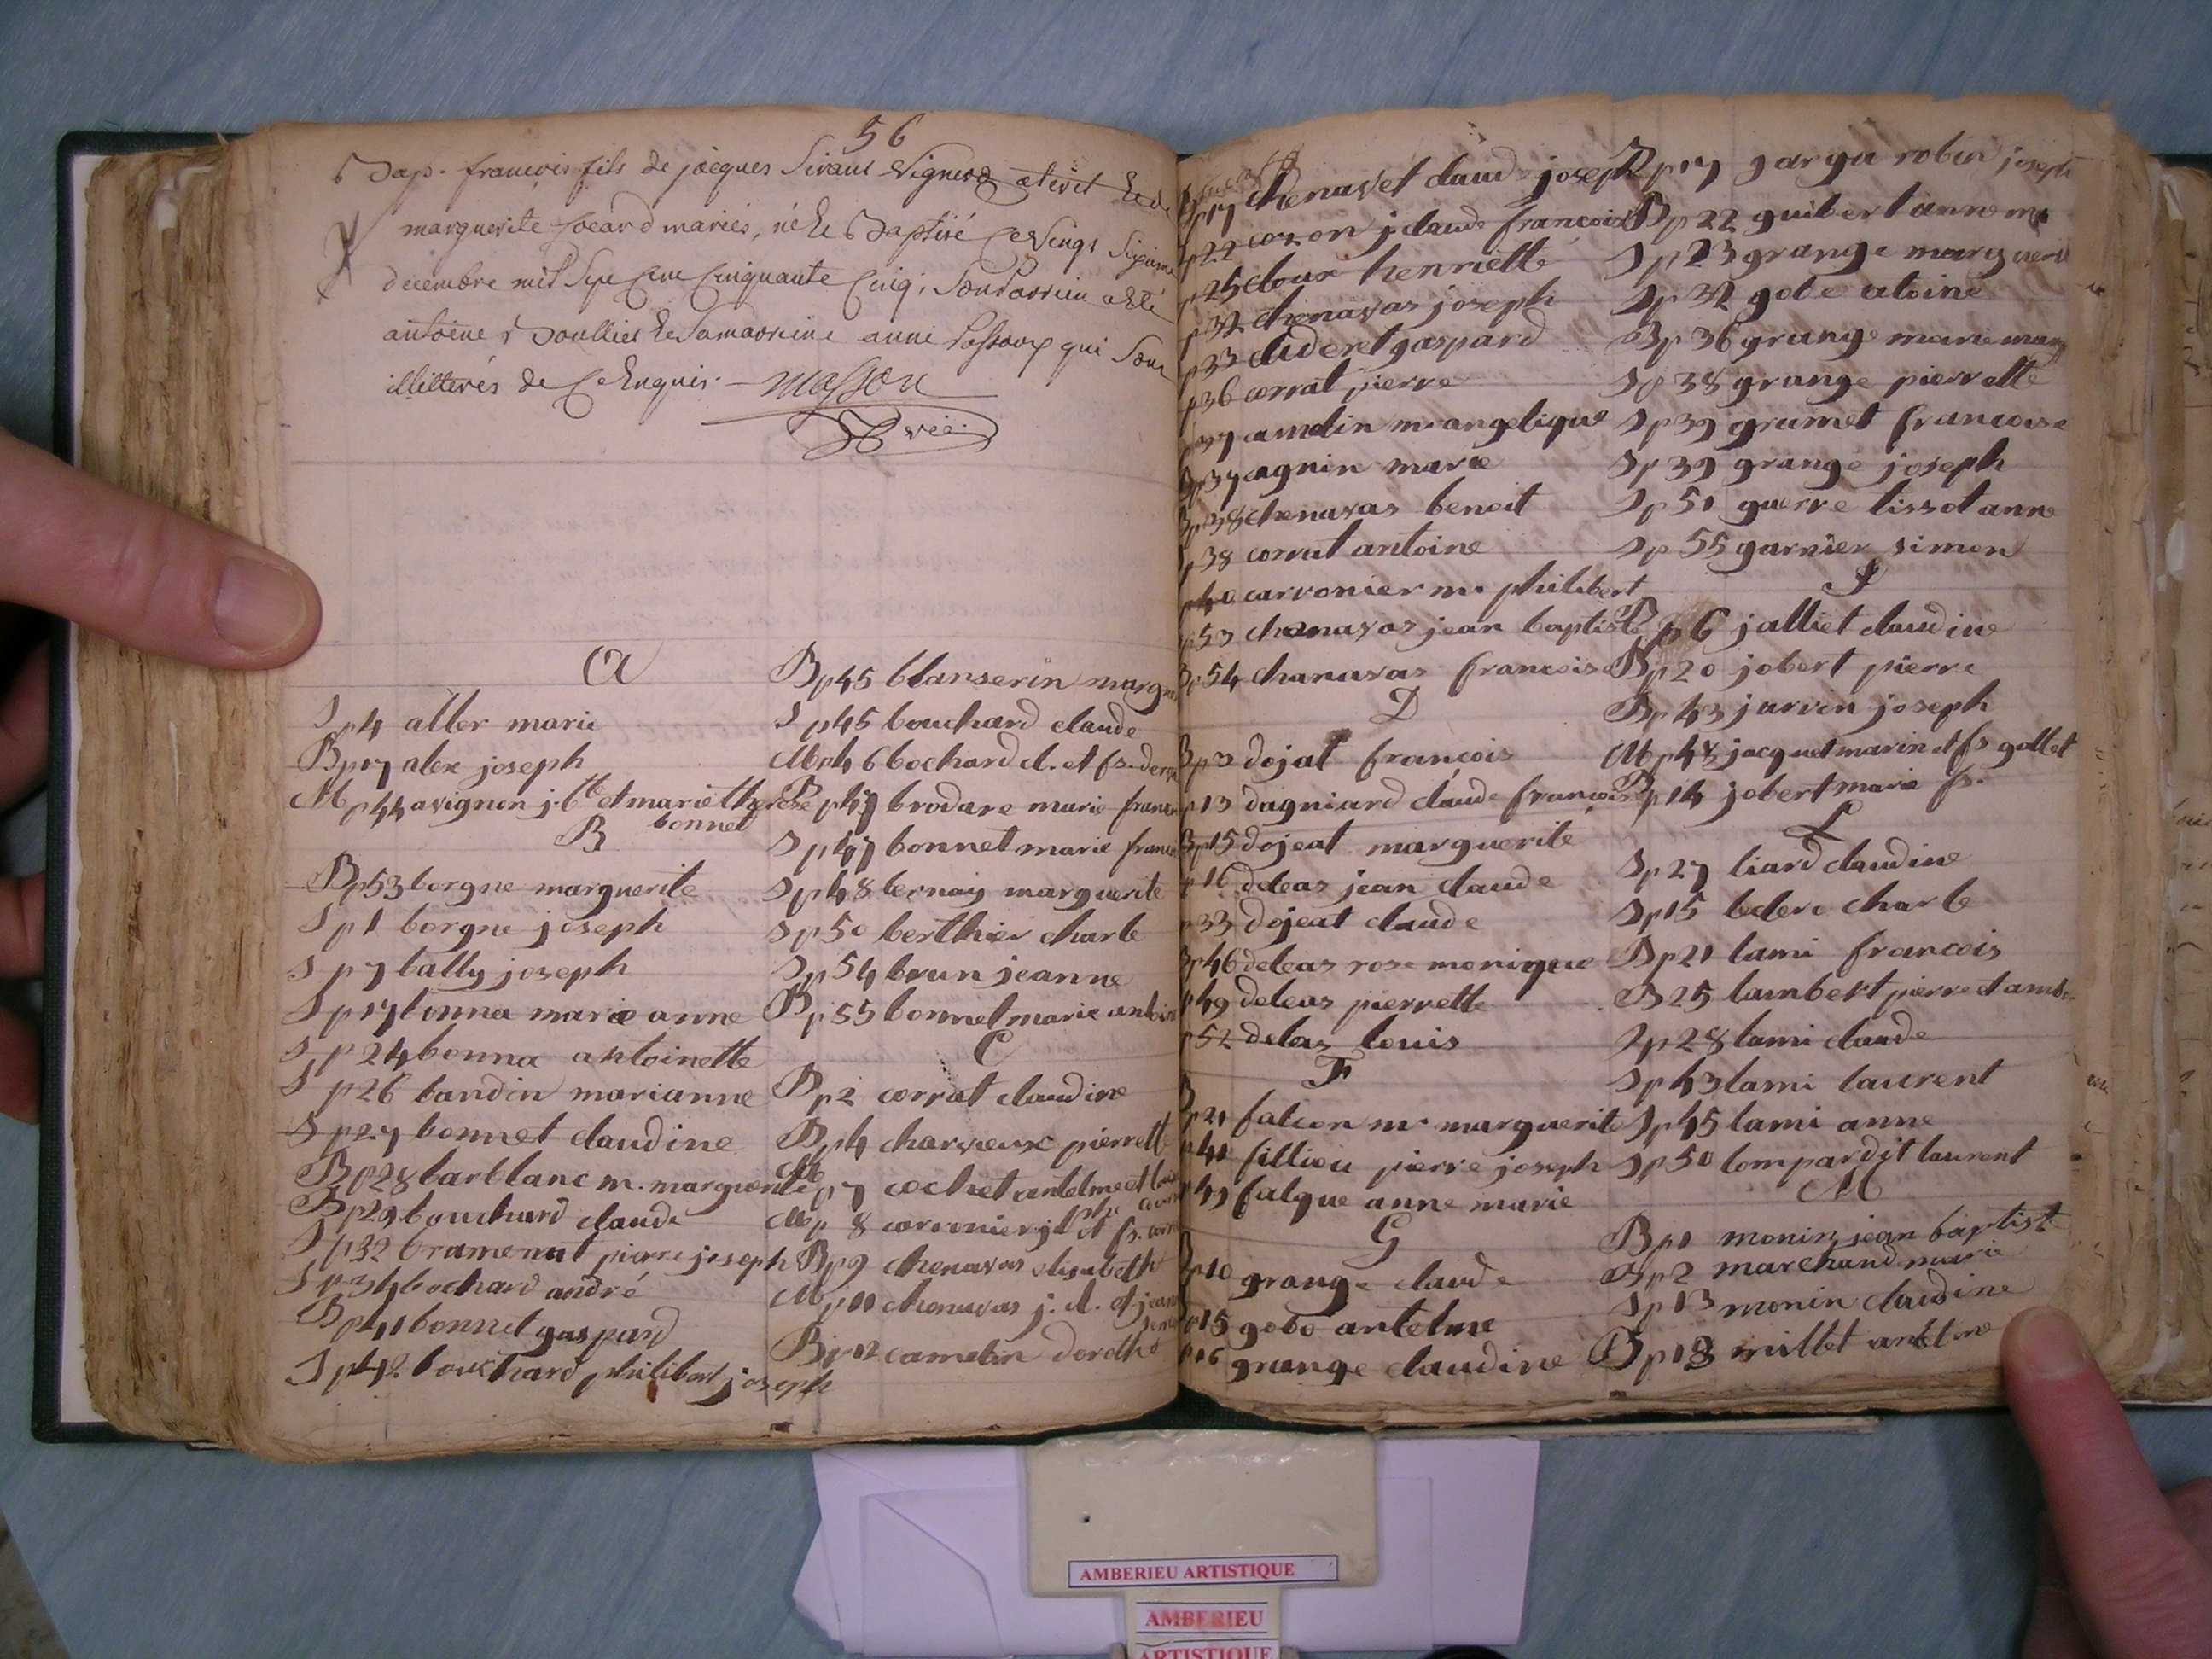 56
Bap. francois fils de jacques Sivant Vigneron
marguerite maries, né et Baptisé ce vingt Sixieme
decembre mil Sept Cent Cinquante Cinq, Son Parrein a Eté
antoine et Sa marreine anne qui Sont
illitterés de Ce Enquis. Masson
A
S p4 aller marie
B p17 alex joseph
M p44 avignon j. bte et marie therese
bonnet
B
B p53 borgne marguerite
S p1 borgne joseph
S p7 bally joseph
S p17 bonna marie anne
S p24 bonna antoinette
S p26 baudin marianne
S p27 bonnet claudine
B p28 barblanc m. marguerite
B p29 bouchard claude
S p32 bramerat pierre joseph
S p34 bochard andré
B p41 bonnet gaspard
S p42 bouchard philibert joseph
B p45 blanserin margue
S p45 bouchard claude
M p46 bochard cl. et fs.
B p47 brodare marie franc
S p47 bonnet marie franc
S p48 bernay marguerite
S p50 berthier charle
S p54 brun jeanne
B p55 bonnet marie antoin
C
B p2 corrat claudine
B p4 charveux pierrette
M p7 cochet antelme et
M p8 carronier j. et fs.
B p9 chenavas elisabeth
M p11 chenavas j. cl. et jean
B p12 camelin dorothé
B p17 chenavet claud joseph
p22 coron j claude francois
p25 cloux henriette
p32 chenavas joseph
p33 clideret gaspard
p36 corrat pierre
p37 amelin m. angelique
B p37 agnin marie
B p38 chenavas benoit
p38 corrat antoine
p40 carronier m. philibert
p53 chanavas jean baptiste
B p54 chanavas francoise
D
B p3 dojat francois
p13 dagniard claude francois
B p15 dojeat marguerite
p16 deleas jean claude
p33 dojeat claude
B p46 deleas rose monique
p49 deleas pierrette
p52 delas louis
F
B p21 falcon m. marguerite
p41 fillieu pierre joseph
p49 falque anne marie
G
B p10 grange claude
p15 gobo antelme
p16 grange claudine
B p17 gargu robin joseph
B p22 guibert anne
S p23 grange marguerit
S p32 gobe atoine
B p36 grange marie marg
S p38 grange pierrette
S p39 grumet francoise
S p39 grange joseph
S p51 guerre tissot anne
S p55 garnier simon
J
B p6 jalliet claudine
B p20 jobert pierre
B p43 jarvin joseph
M p48 jacquet marin et fs gallet
B p14 jobert marie fs.
L
S p27 liard claudine
S p15 leclere charle
B p21 lami francois
B 25 lambert pierre et amb
S p28 lami claude
S p43 lami laurent
S p45 lami anne
S p50 lompardit laurent
M
B p1 monin jean baptiste
B p2 marchand marie
S p13 monin claudine
B p18 millet antelme
AMBERIEU ARTISTIQUE
AMBERIEU
ARTISTIQUE